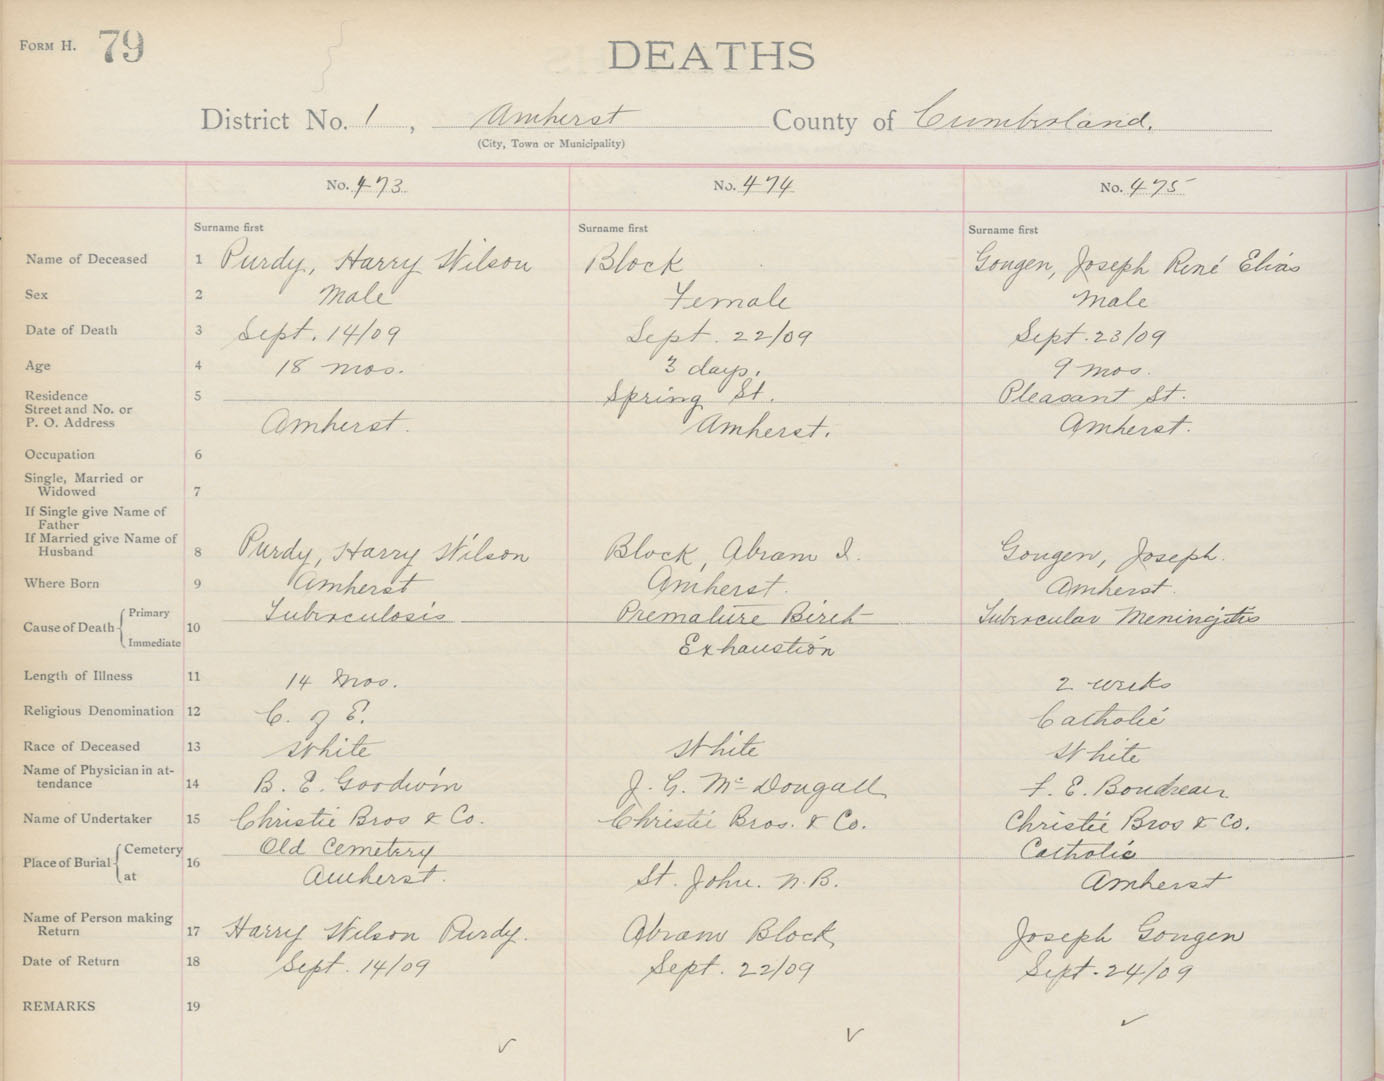 FORM H. 79
DEATHS
District No. 1, Amherst County of Cumberland.
(City, Town or Municipality)
No. 473 No. 474 No. 475
Surname first Surname first Surname first
Name of Deceased 1 Purdy, Harry Wilson Block Gougen, Joseph René Elias
Sex 2 Male Female Male
Date of Death 3 Sept. 14/09 Sept. 22/09 Sept. 23/09
Age 4 18 mos. 3 days. 9 mos.
Residence 5 Spring St. Pleasant St.
Street and No. or
P. O. Address Amherst. Amherst. Amherst.
Occupation 6
Single, Married or
Widowed 7
If Single give Name of
Father
If Married give Name of
Husband 8 Purdy, Harry Wilson Block, Abram I. Gougen, Joseph.
Where Born 9 Amherst Amherst. Amherst.
Cause of Death Primary 10 Tuberculosis Premature Birth Tubercular Meningitis
Immediate Exhaustion
Length of Illness 11 14 Mos. 2 weeks
Religious Denomination 12 C. of E. Catholic
Race of Deceased 13 White White White
Name of Physician in at-
tendance 14 B. E. Goodwin J. G. McDougall F. E. Boudreau
Name of Undertaker 15 Christie Bros & Co. Christie Bros. & Co. Christie Bros & Co.
Place of Burial Cemetery 16 Old Cemetery Catholic
at Amherst. St. John. N.B. Amherst
Name of Person making
Return 17 Harry Wilson Purdy. Abram Block Joseph Gougen
Date of Return 18 Sept. 14/09 Sept. 22/09 Sept. 24/09
REMARKS 19